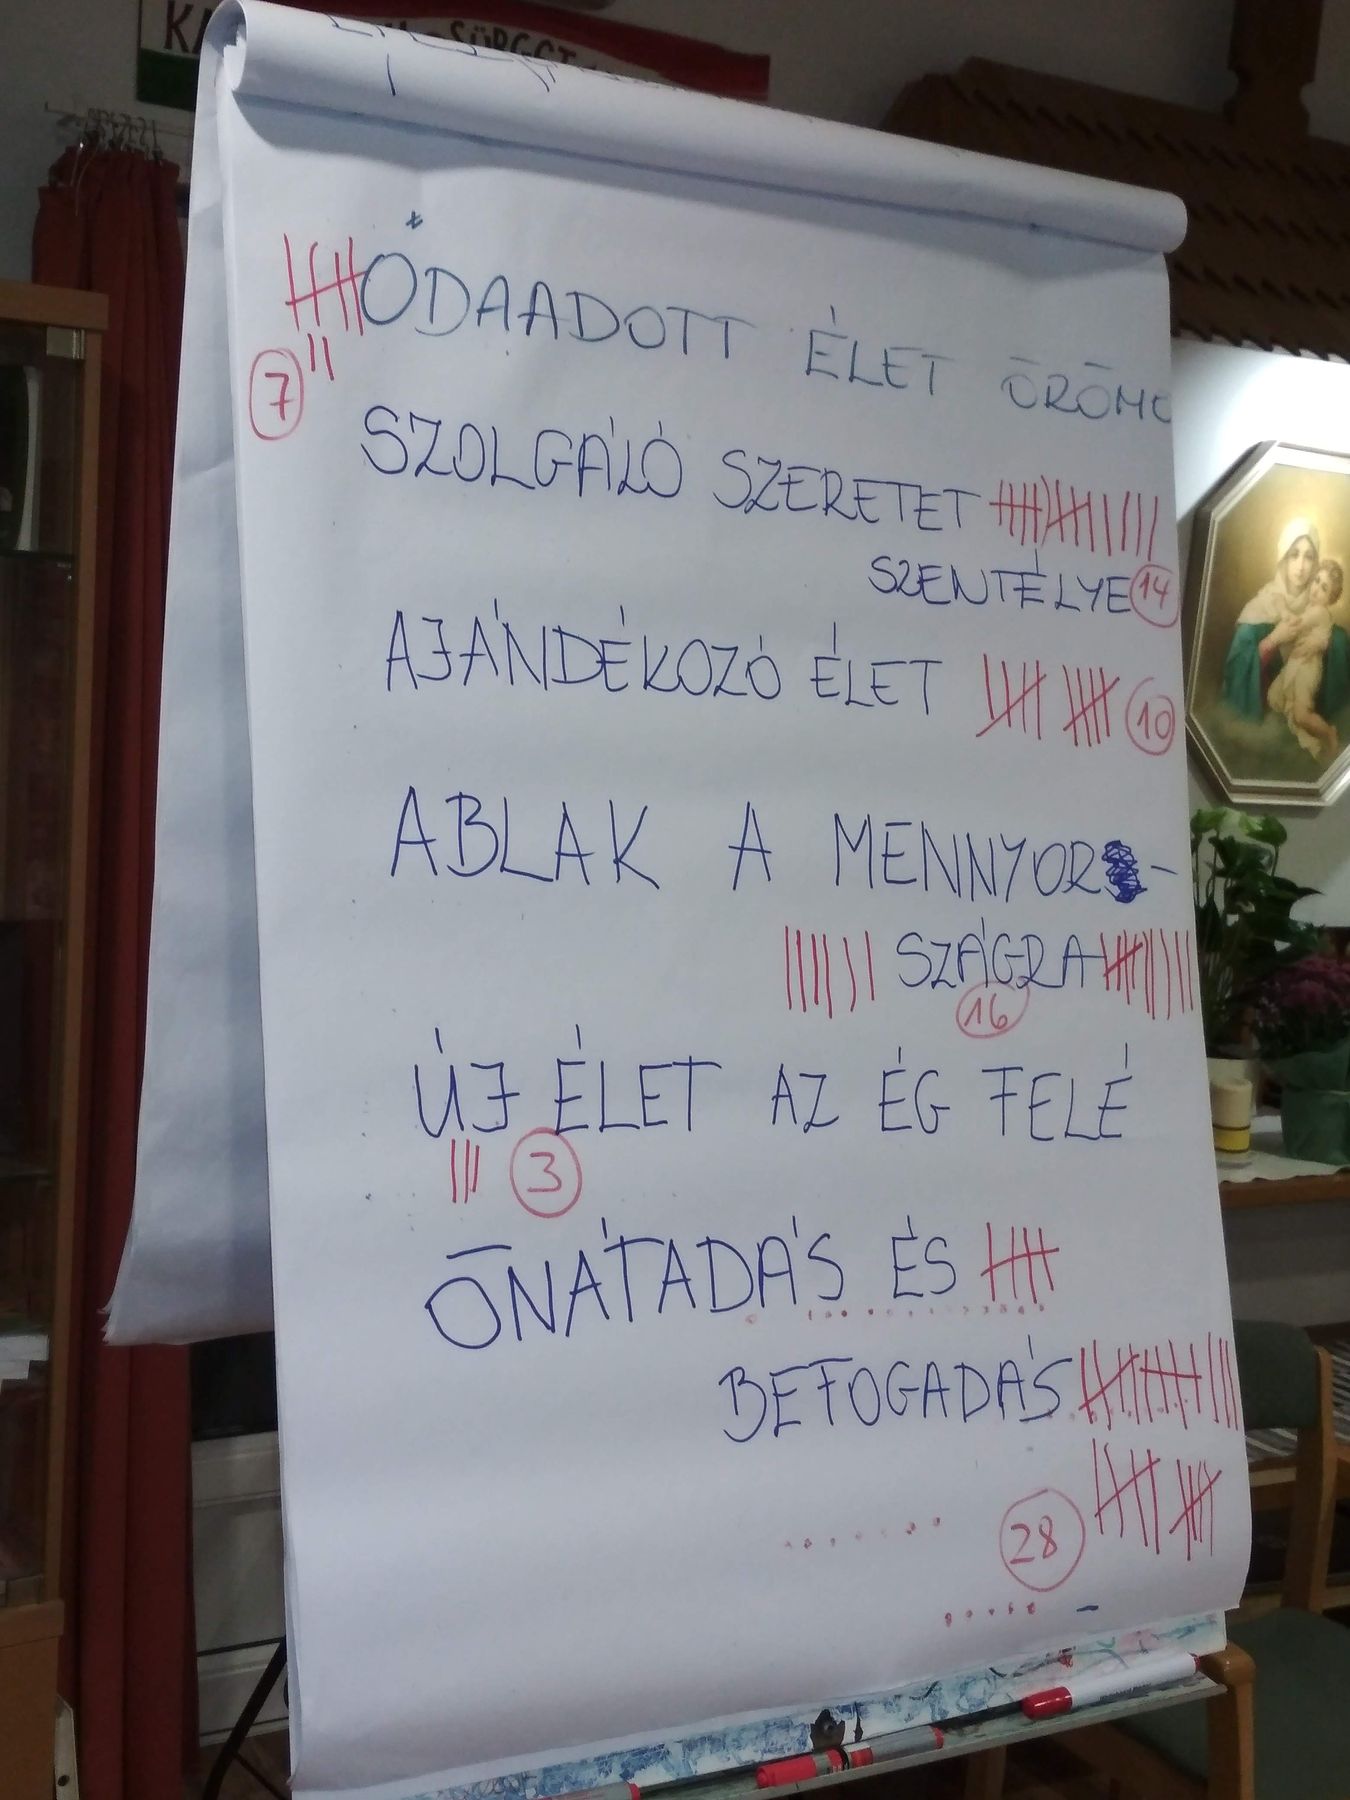 SÜRGET
ODAADOTT ÉLET ÖRÖME
7
SZOLGÁLÓ SZERETET
SZENTÉLYE 14
AJÁNDÉKOZÓ ÉLET 10
ABLAK A MENNYOR-
SZÁGRA
16
ÚJ ÉLET AZ ÉG FELÉ
3
ÖNÁTADÁS ÉS
BEFOGADÁS
28